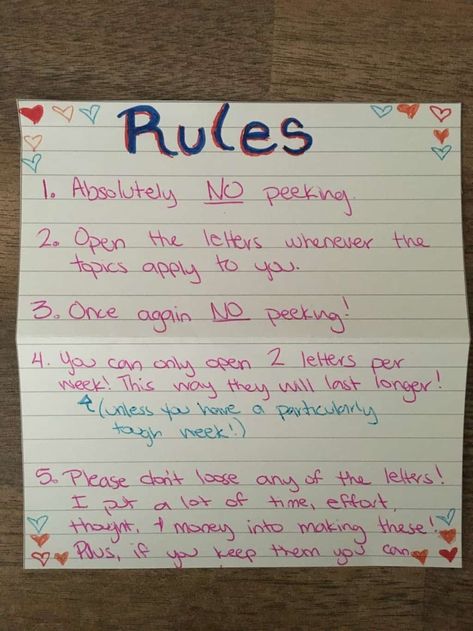 Rules
1. Absolutely NO peeking.
2. Open the letters whenever the
topics apply to you.
3. Once again NO peeking!
4. You can only open 2 letters per
week! This way they will last longer!
(unless you have a particularly
tough week!)
5. Please don't loose any of the letters!
I put a lot of time, effort,
thought, + money into making these!
Plus, if you keep them you can